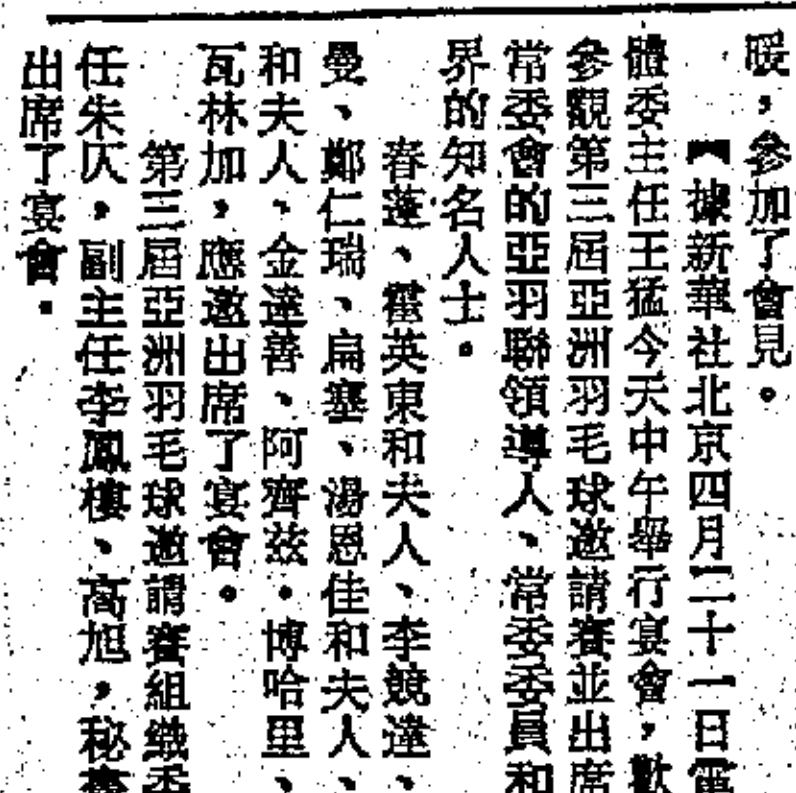 暖，參加了會見。
【據新華社北京四月二十一日電
體委主任王猛今天中午舉行宴會，歡
參觀第三屆亞洲羽毛球邀請賽並出席
常委會的亞羽聯領導人、常委委員和
界的知名人士。
春蓬、霍英東和夫人、李競達、
曼、鄭仁瑞、扁塞、湯恩佳和夫人、
和夫人、金達善、阿齊兹·博哈里、
瓦林加，應邀出席了宴會。
第三屆亞洲羽毛球邀請賽組織委
任朱仄，副主任李鳳樓、高旭，秘書
出席了宴會。